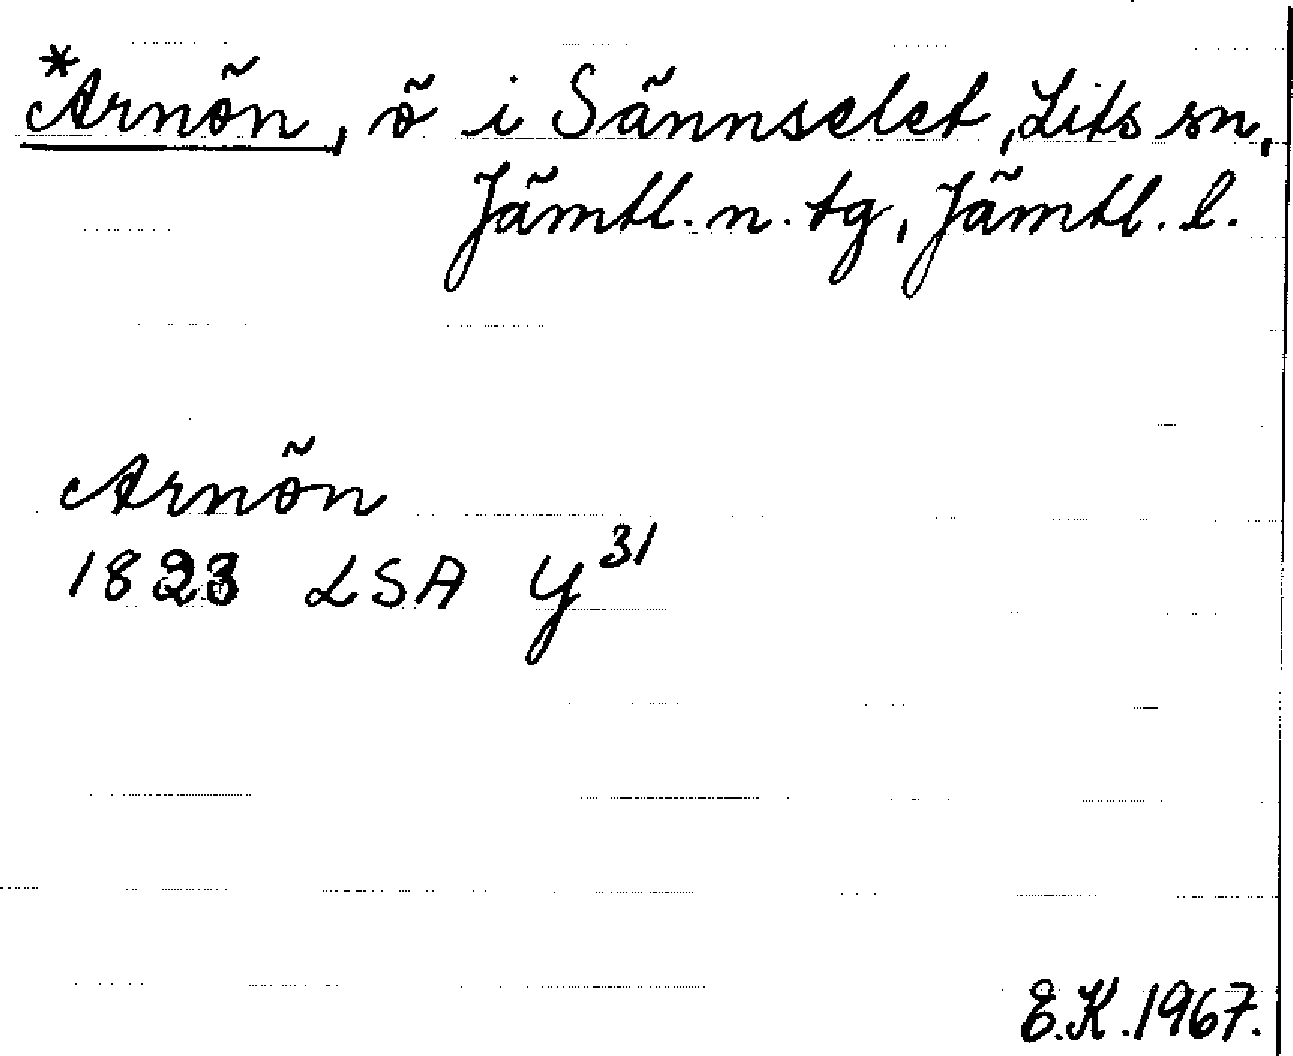 *Arnön, ö i Sännselet, Lits sn,
Jämtl. n. tg, Jämtl. l.
Arnön
1823 LSA Y³¹
E.K. 1967.